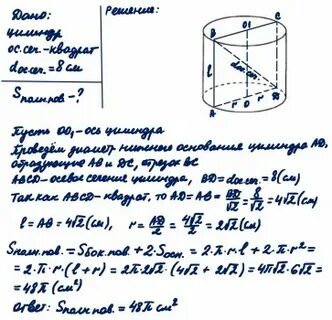 Дано:
цилиндр
ос.сеч.-квадрат
dос.сеч.=8см
Sполн.пов - ?
Решение:
B O1 C
l dос.сеч.
A r O r D
Пусть OO1-ось цилиндра
Проведём диаметр нижнего основания цилиндра AD,
образующие AB и DC, отрезок BC
ABCD-осевое сечение цилиндра, BD=dос.сеч.=8(см)
Так как ABCD-квадрат, то AD=AB=BD/√2=8/√2=4√2(см)
l=AB=4√2(см), r=AD/2=4√2/2=2√2(см)
Sполн.пов.=Sбок.пов.+2·Sосн.=2·π·r·l+2·π·r²=
=2·π·r·(l+r)=2π·2√2·(4√2+2√2)=4π√2·6√2=
=48π(см²)
Ответ: Sполн.пов.=48π см²